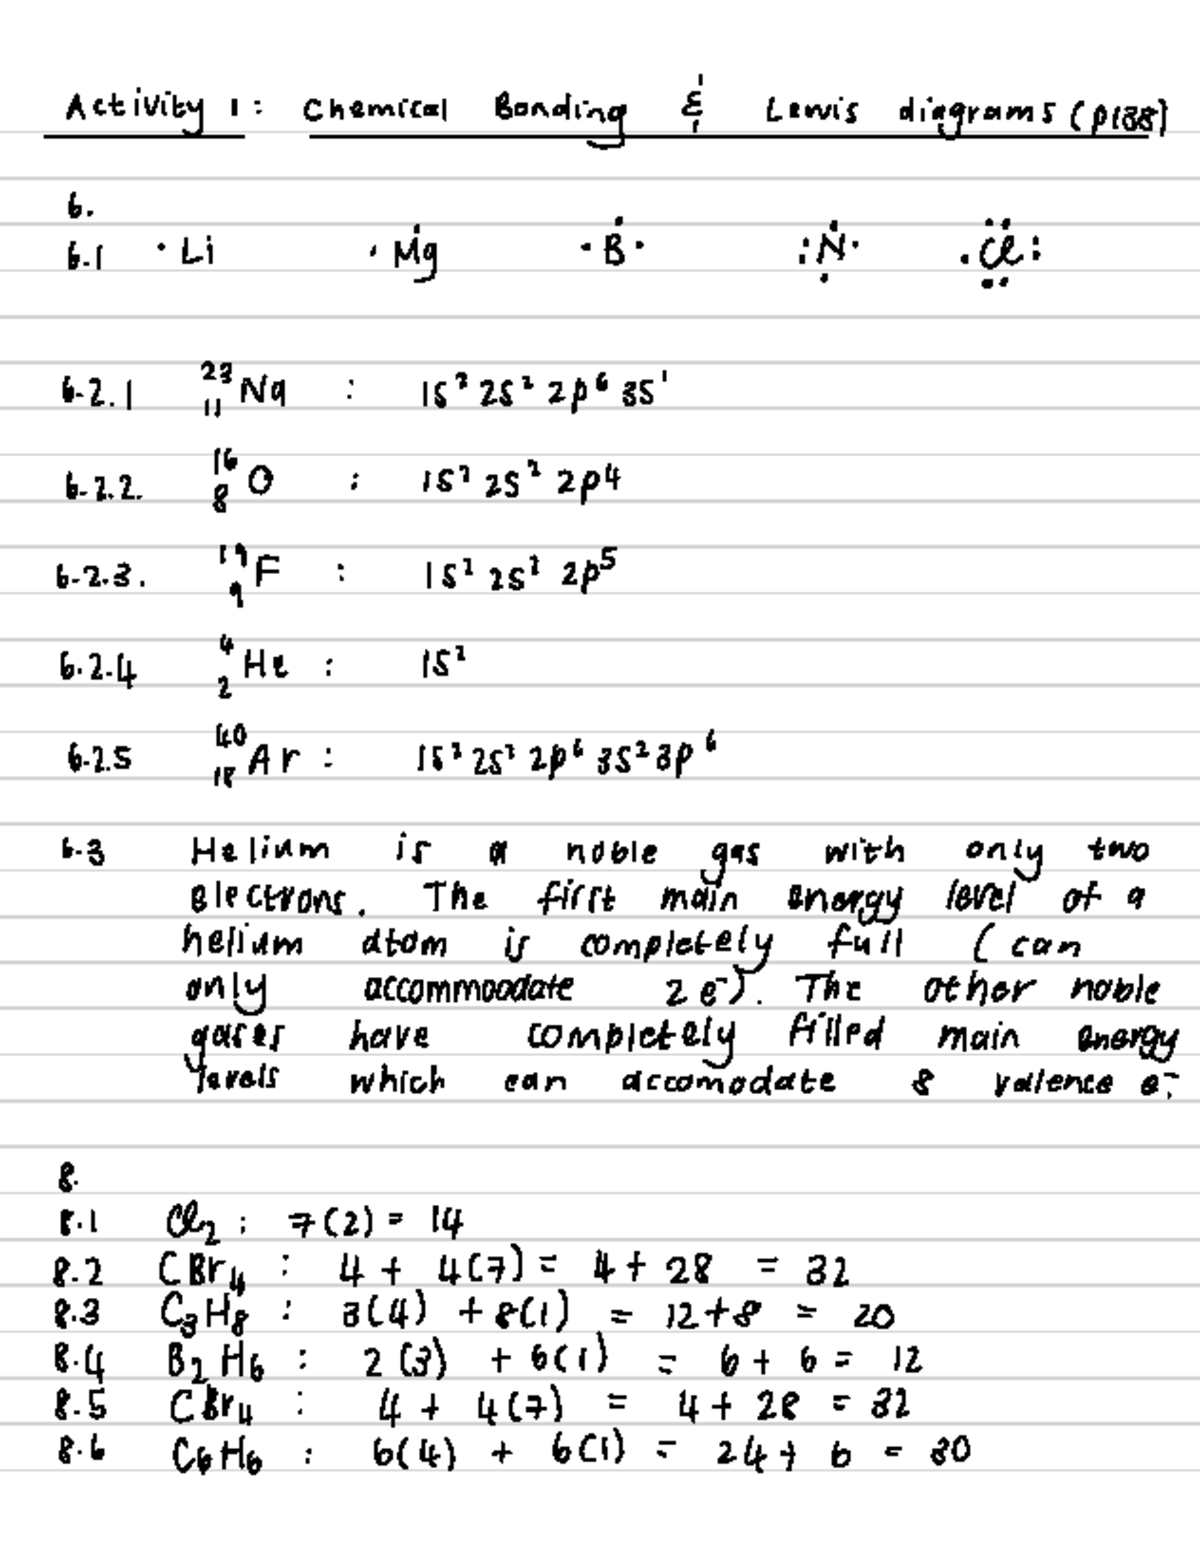 Activity 1: Chemical Bonding & Lewis diagrams (p188)
6.
6.1 · Li · Mg · · B · : N · . Cl :
6.2.1 ²³₁₁Na : 1s² 2s² 2p⁶ 3s¹
6.2.2. ¹⁶₈O : 1s² 2s² 2p⁴
6.2.3. ¹⁹₉F : 1s² 2s² 2p⁵
6.2.4 ⁴₂He : 1s²
6.2.5 ⁴⁰₁₈Ar : 1s² 2s² 2p⁶ 3s² 3p⁶
6.3 Helium is a noble gas with only two
electrons. The first main energy level of a
helium atom is completely full (can
only accommoodate 2 e⁻). The other noble
gases have completely filled main energy
levels which can accomodate 8 valence e⁻.
8.
8.1 Cl₂ : 7(2) = 14
8.2 CBr₄ : 4 + 4(7) = 4 + 28 = 32
8.3 C₃H₈ : 3(4) + 8(1) = 12 + 8 = 20
8.4 B₂H₆ : 2(3) + 6(1) = 6 + 6 = 12
8.5 CBr₄ : 4 + 4(7) = 4 + 28 = 32
8.6 C₆H₆ : 6(4) + 6(1) = 24 + 6 = 30